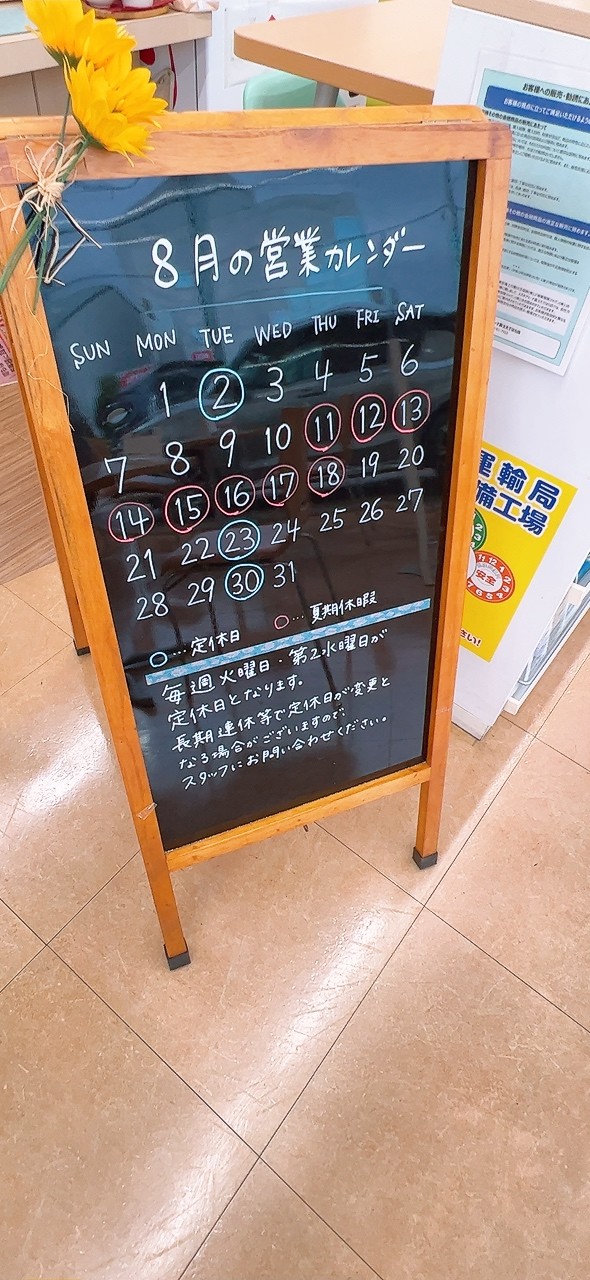 8月の営業カレンダー
SUN MON TUE WED THU FRI SAT
1 2 3 4 5 6
7 8 9 10 11 12 13
14 15 16 17 18 19 20
21 22 23 24 25 26 27
28 29 30 31
○…定休日 ○…夏期休暇
毎週火曜日・第2水曜日が
定休日となります。
長期連休等で定休日が変更と
なる場合がございますので、
スタッフにお問い合わせください。
お客様への販売・勧誘にあ
お客様の視点に立ってご満足いただけるよう
運輸局
備工場
安全
さい!